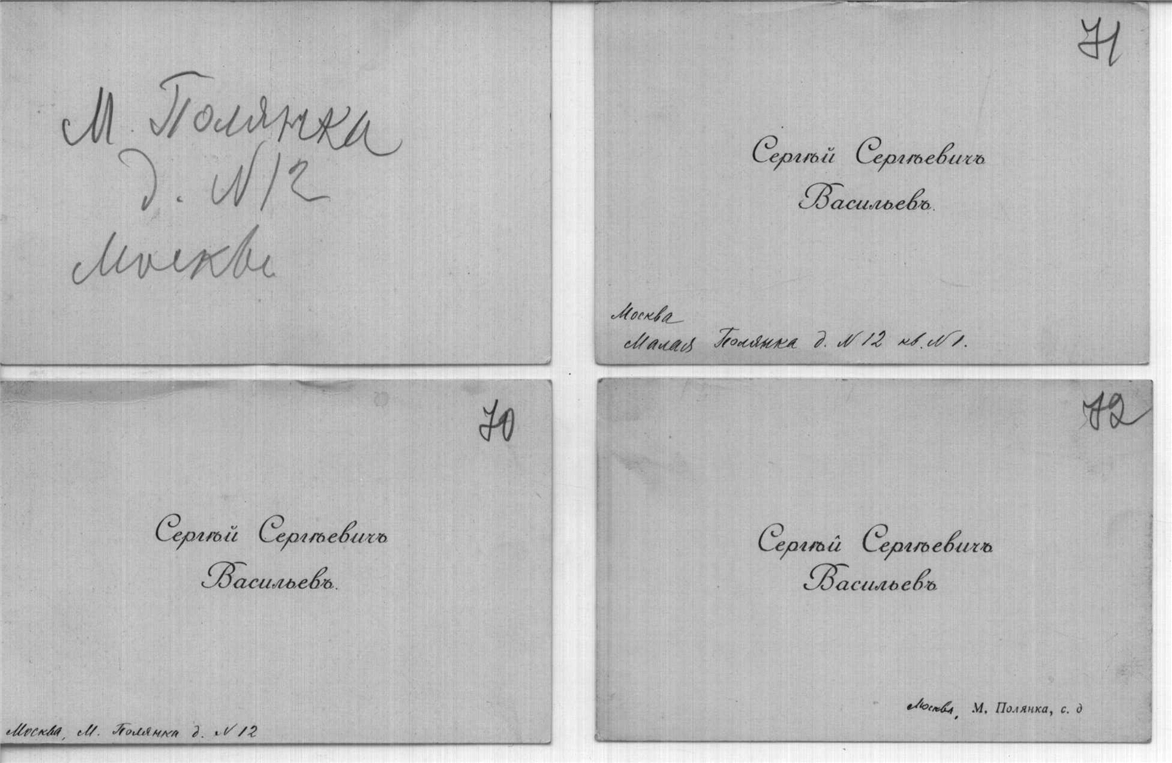 М. Полянка
д. N 12
Москва
71
Сергѣй Сергѣевичъ
Васильевъ.
Москва
Малая Полянка д. N 12 кв. N 1.
70
Сергѣй Сергѣевичъ
Васильевъ.
Москва, М. Полянка д. N 12
72
Сергѣй Сергѣевичъ
Васильевъ
Москва, М. Полянка, с. д